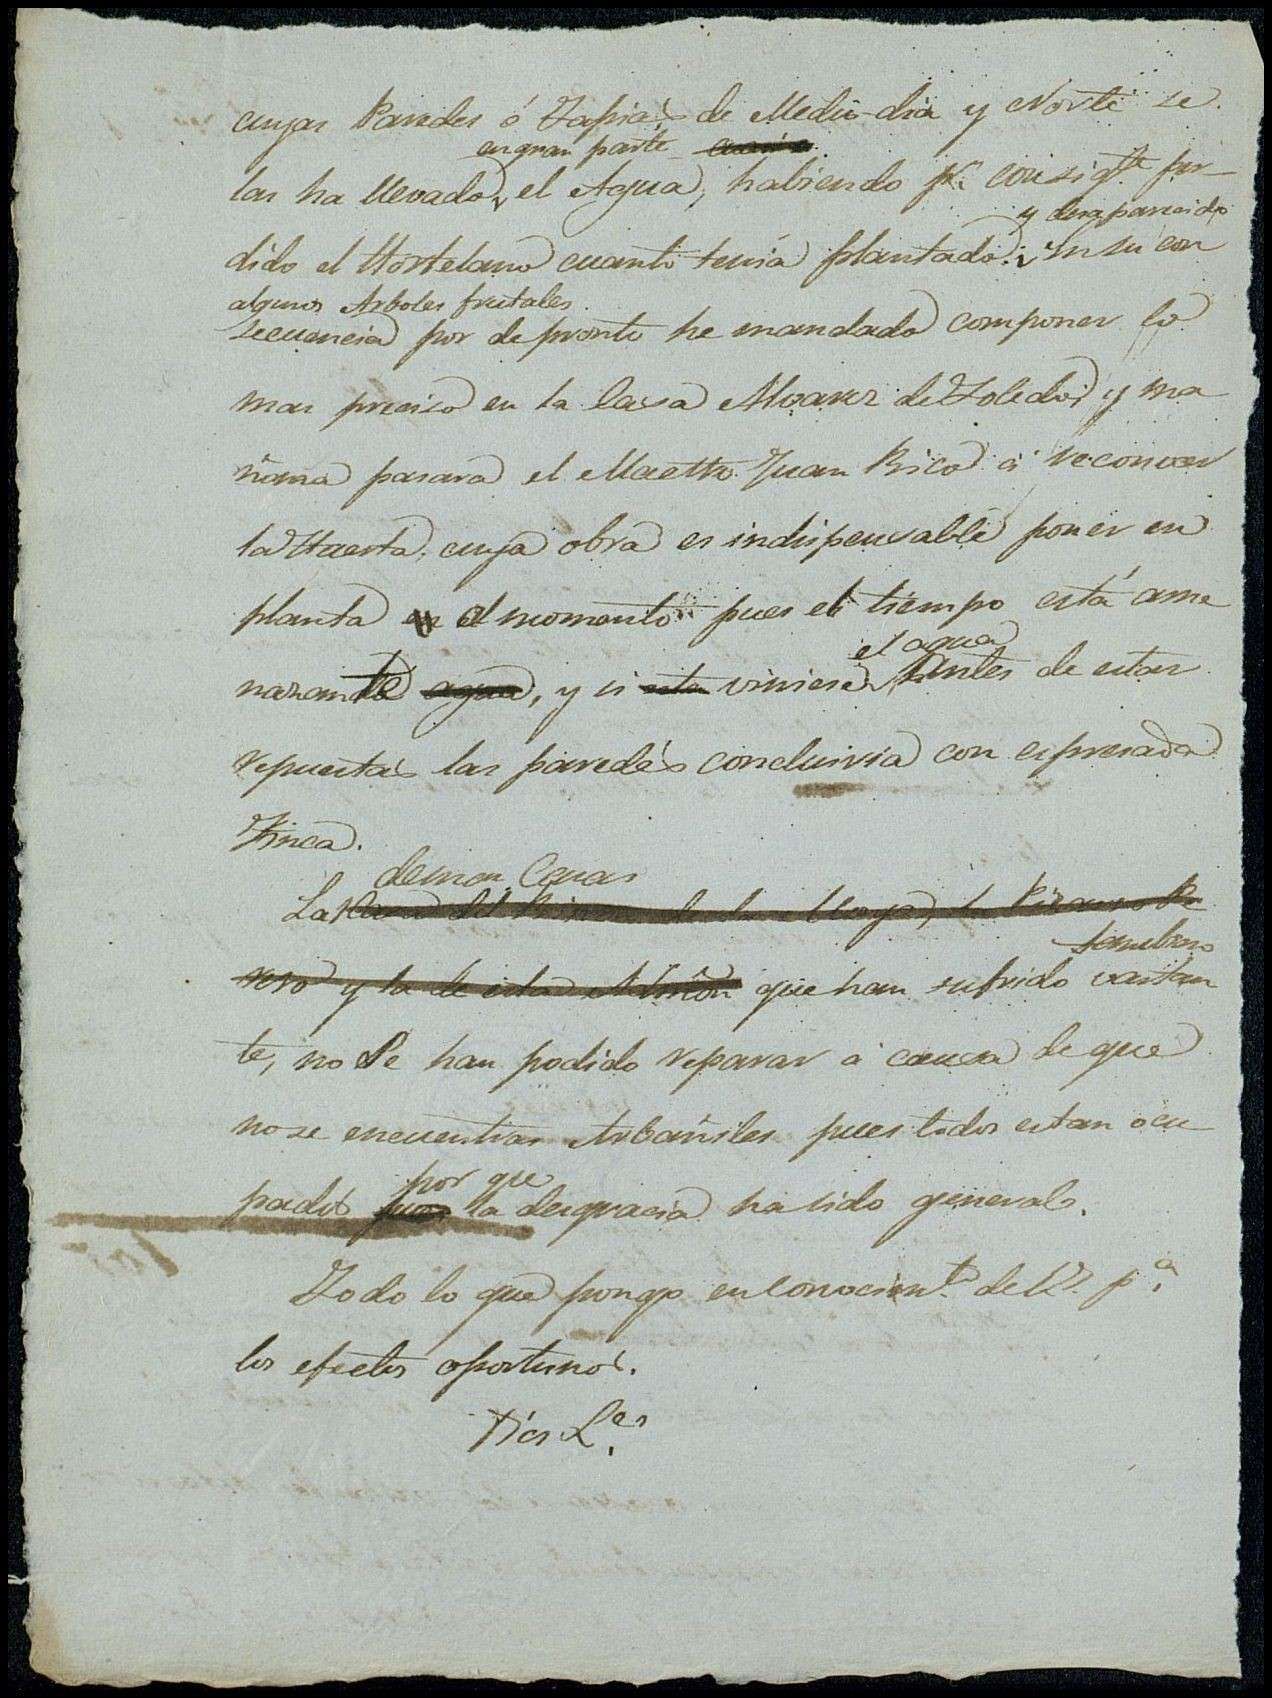 cuyas Paredes ó Tapias de Medio-dia y Norte se
en gran parte
las ha llevado el Agua, habiendo pr. consigte per-
y desaparecido
dido el Hortelano cuanto tenia plantado: En su con
algunos Arboles frutales
secuencia por de pronto he mandado componer lo
mas preciso en la Casa Alvarez de Toledo, y ma
ñana pasara el Maestro Juan Rico á reconocer
la Huerta, cuya obra es indispensable poner en
planta en el momento pues el tiempo está ame
el agua
nazante agua, y si esta viniese antes de estar
repuestas las paredes concluiria con espresada
Finca.
demas Casas
Las
tambien
y la de esta que han sufrido vastan
te, no se han podido reparar á causa de que
no se encuentran Arbañiles pues todos estan ocu
por que
pados pues la desgracia ha sido general.
Todo lo que pongo en conocimto. de V. pa.
los efectos oportunos.
Dios Les.